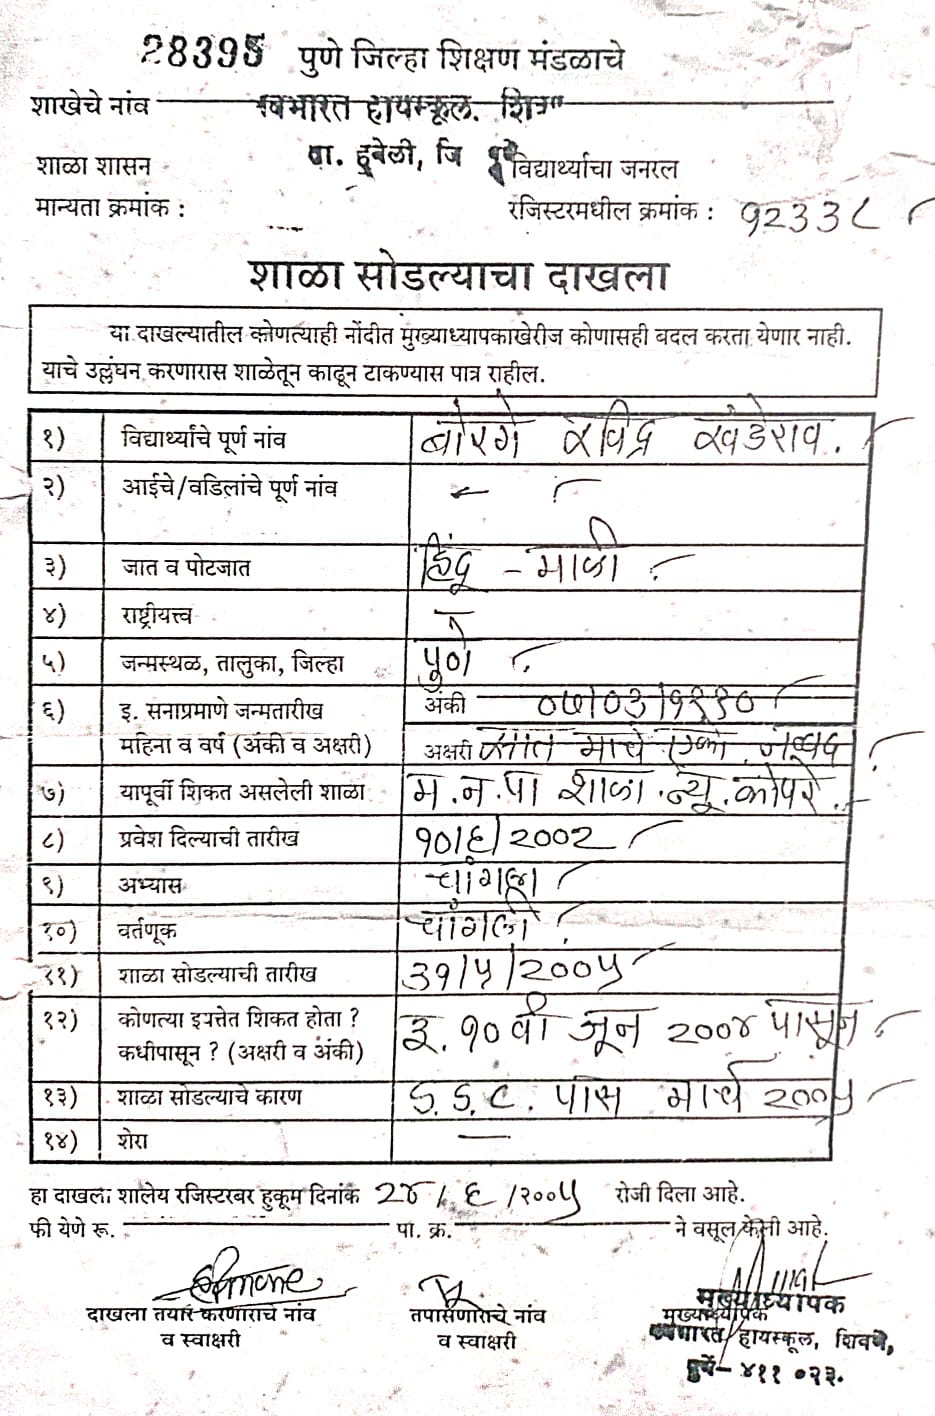 28395 पुणे जिल्हा शिक्षण मंडळाचे
शाखेचे नांव नवभारत हायस्कूल. शिव
ता. हवेली, जि पुणे
शाळा शासन विद्यार्थ्याचा जनरल
मान्यता क्रमांक : रजिस्टरमधील क्रमांक : १२३३८
शाळा सोडल्याचा दाखला
या दाखल्यातील कोणत्याही नोंदीत मुख्याध्यापकाखेरीज कोणासही बदल करता येणार नाही.
याचे उल्लंघन करणारास शाळेतून काढून टाकण्यास पात्र राहील.
१) विद्यार्थ्याचे पूर्ण नांव बोरगे रविंद्र खंडेराव.
२) आईचे/वडिलांचे पूर्ण नांव
३) जात व पोटजात हिंदू - माळी
४) राष्ट्रीयत्त्व
५) जन्मस्थळ, तालुका, जिल्हा पुणे
६) इ. सनाप्रमाणे जन्मतारीख अंकी ०७/०३/१९९०
महिना व वर्ष (अंकी व अक्षरी) अक्षरी सात मार्च एको. नव्वद
७) यापूर्वी शिकत असलेली शाळा म.न.पा शाळा.न्यू.कोपरे.
८) प्रवेश दिल्याची तारीख १०/६/२००२
९) अभ्यास चांगला
१०) वर्तणूक चांगली
११) शाळा सोडल्याची तारीख ३१/५/२००५
१२) कोणत्या इयत्तेत शिकत होता ? इ. १० वी जून २००४ पासून
कधीपासून ? (अक्षरी व अंकी)
१३) शाळा सोडल्याचे कारण S. S. C. पास मार्च २००५
१४) शेरा —
हा दाखला शालेय रजिस्टरबर हुकूम दिनांक २४/६/२००५ रोजी दिला आहे.
फी येणे रू. पा. क्र. ने वसूल केली आहे.
दाखला तयार करणाराचे नांव तपासणाराचे नांव मुख्याध्यापक
व स्वाक्षरी व स्वाक्षरी
मुख्याध्यापक
नवभारत हायस्कूल, शिवणे,
पुणे- ४११ ०२३.